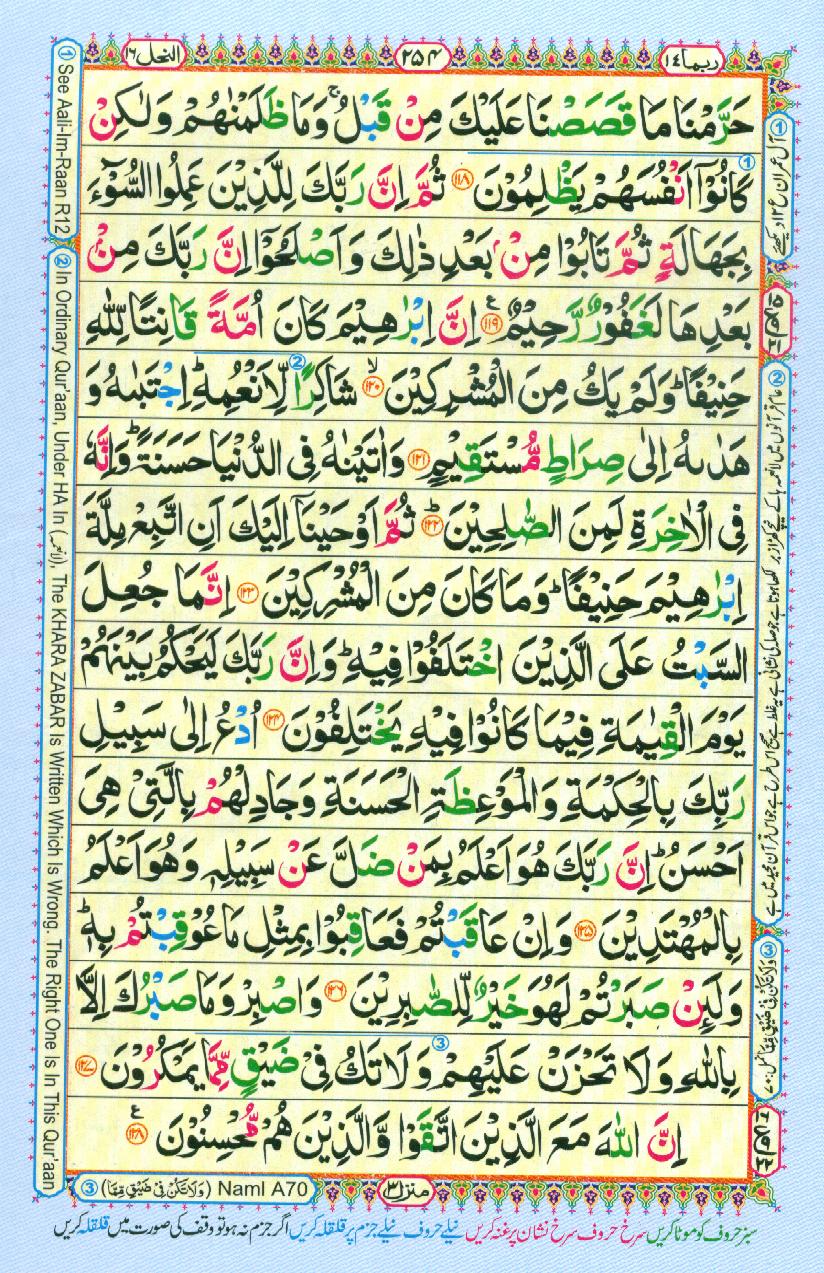 ربما ١٤
٢٥٤
النحل ١٦
حَرَّمْنَا مَا قَصَصْنَا عَلَيْكَ مِنْ قَبْلُ ۚ وَمَا ظَلَمْنٰهُمْ وَلٰكِنْ
كَانُوْۤا اَنْفُسَهُمْ يَظْلِمُوْنَ ﴿۱۱۸﴾ ثُمَّ اِنَّ رَبَّكَ لِلَّذِيْنَ عَمِلُوا السُّوْٓءَ
بِجَهَالَةٍ ثُمَّ تَابُوْا مِنْۢ بَعْدِ ذٰلِكَ وَاَصْلَحُوْۤا اِنَّ رَبَّكَ مِنْۢ
بَعْدِهَا لَغَفُوْرٌ رَّحِيْمٌ ﴿۱۱۹﴾ اِنَّ اِبْرٰهِيْمَ كَانَ اُمَّةً قَانِتًا لِّلّٰهِ
حَنِيْفًا ؕ وَلَمْ يَكُ مِنَ الْمُشْرِكِيْنَ ﴿۱۲۰﴾ شَاكِرًا لِّاَنْعُمِهٖ ؕ اِجْتَبٰىهُ وَ
هَدٰىهُ اِلٰى صِرَاطٍ مُّسْتَقِيْمٍ ﴿۱۲۱﴾ وَاٰتَيْنٰهُ فِى الدُّنْيَا حَسَنَةً ؕ وَاِنَّهٗ
فِى الْاٰخِرَةِ لَمِنَ الصّٰلِحِيْنَ ﴿۱۲۲﴾ ثُمَّ اَوْحَيْنَاۤ اِلَيْكَ اَنِ اتَّبِعْ مِلَّةَ
اِبْرٰهِيْمَ حَنِيْفًا ؕ وَمَا كَانَ مِنَ الْمُشْرِكِيْنَ ﴿۱۲۳﴾ اِنَّمَا جُعِلَ
السَّبْتُ عَلَى الَّذِيْنَ اخْتَلَفُوْا فِيْهِ ؕ وَاِنَّ رَبَّكَ لَيَحْكُمُ بَيْنَهُمْ
يَوْمَ الْقِيٰمَةِ فِيْمَا كَانُوْا فِيْهِ يَخْتَلِفُوْنَ ﴿۱۲۴﴾ اُدْعُ اِلٰى سَبِيْلِ
رَبِّكَ بِالْحِكْمَةِ وَالْمَوْعِظَةِ الْحَسَنَةِ وَجَادِلْهُمْ بِالَّتِىْ هِىَ
اَحْسَنُ ؕ اِنَّ رَبَّكَ هُوَ اَعْلَمُ بِمَنْ ضَلَّ عَنْ سَبِيْلِهٖ وَهُوَ اَعْلَمُ
بِالْمُهْتَدِيْنَ ﴿۱۲۵﴾ وَاِنْ عَاقَبْتُمْ فَعَاقِبُوْا بِمِثْلِ مَا عُوْقِبْتُمْ بِهٖ ؕ
وَلَئِنْ صَبَرْتُمْ لَهُوَ خَيْرٌ لِّلصّٰبِرِيْنَ ﴿۱۲۶﴾ وَاصْبِرْ وَمَا صَبْرُكَ اِلَّا
بِاللّٰهِ وَلَا تَحْزَنْ عَلَيْهِمْ وَلَا تَكُ فِىْ ضَيْقٍ مِّمَّا يَمْكُرُوْنَ ﴿۱۲۷﴾
اِنَّ اللّٰهَ مَعَ الَّذِيْنَ اتَّقَوْا وَّالَّذِيْنَ هُمْ مُّحْسِنُوْنَ ﴿۱۲۸﴾
منزل ٣
③ Naml A70 (وَلَا تَكُنْ فِىْ ضَيْقٍ مِّمَّا)
① See Aali-Im-Raan R12
② In Ordinary Qur'aan, Under HA In (لِاَنْعُمِهٖ), The KHARA ZABAR Is Written Which Is Wrong. The Right One Is In This Qur'aan
① آل عمران ع ۱۲ دیکھیے
③ وَلَا تَكُنْ فِىْ ضَيْقٍ مِّمَّا نمل: ۷۰
سبز حروف کو موٹا کریں سرخ حروف سرخ نشان پر غنہ کریں نیلے حروف نیلے جزم پر قلقلہ کریں اگر جزم نہ ہو تو وقف کی صورت میں قلقلہ کریں